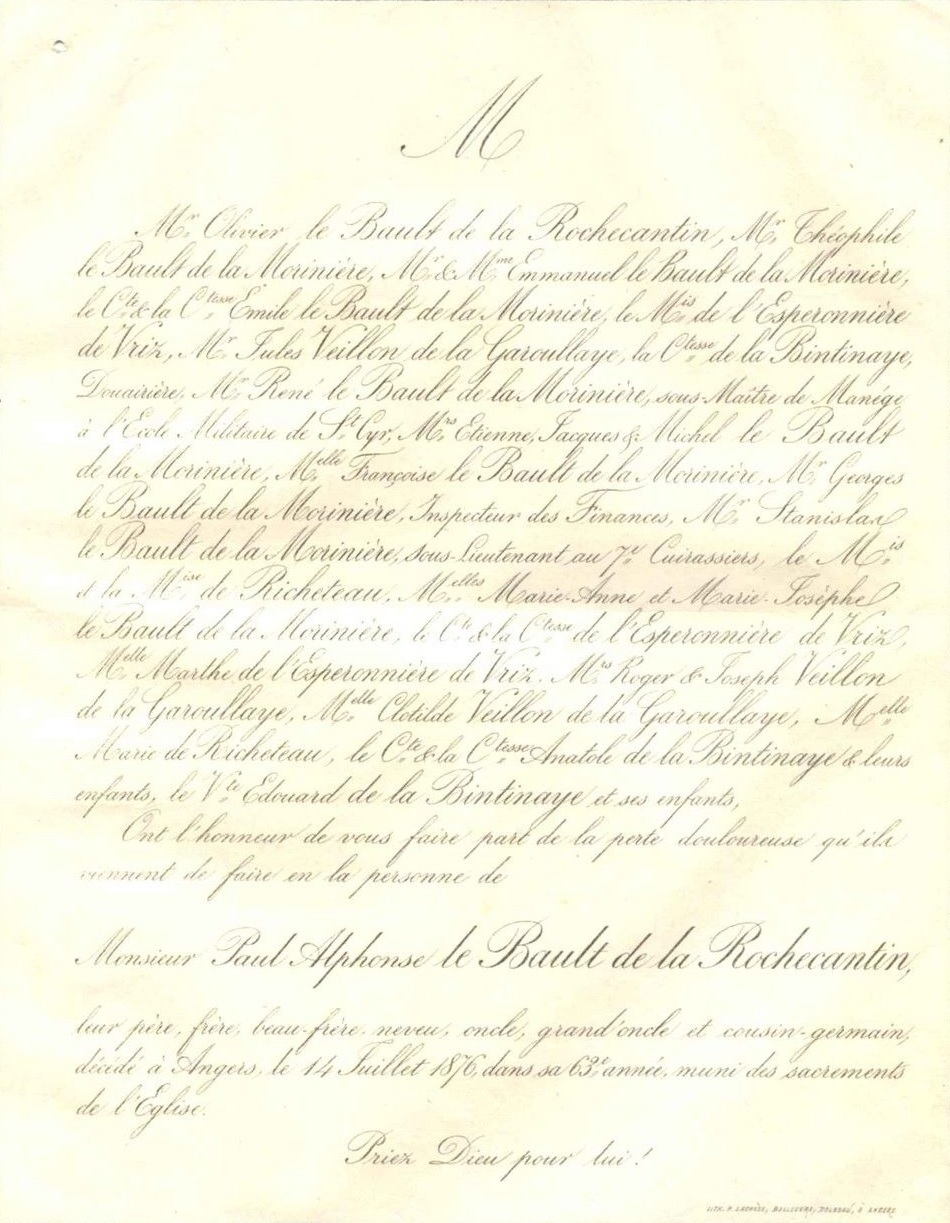 M
Mr. Olivier le Bault de la Rochecantin, Mr. Théophile
le Bault de la Morinière, Mr. & Mme. Emmanuel le Bault de la Morinière,
le Cte. & la Ctesse. Emile le Bault de la Morinière, le Mis. de l'Esperonnière
de Vriz, Mr. Jules Veillon de la Garoullaye, la Ctesse. de la Bintinaye,
Douairière, Mr. René le Bault de la Morinière, sous-Maître de Manége
à l'Ecole Militaire de St. Cyr, Mrs. Etienne, Jacques & Michel le Bault
de la Morinière, Melle. Françoise le Bault de la Morinière, Mr. Georges
le Bault de la Morinière, Inspecteur des Finances, Mr. Stanislas
le Bault de la Morinière, sous-Lieutenant au 7e. Cuirassiers, le Mis.
et la Mise. de Richeteau, Melles. Marie-Anne et Marie-Josèphe
le Bault de la Morinière, le Cte. & la Ctesse. de l'Esperonnière de Vriz,
Melle. Marthe de l'Esperonnière de Vriz, Mrs. Roger & Joseph Veillon
de la Garoullaye, Melle. Clotilde Veillon de la Garoullaye, Melle.
Marie de Richeteau, le Cte. & la Ctesse. Anatole de la Bintinaye & leurs
enfants, le Vte. Edouard de la Bintinaye et ses enfants,
Ont l'honneur de vous faire part de la perte douloureuse qu'ils
viennent de faire en la personne de
Monsieur Paul Alphonse le Bault de la Rochecantin,
leur père, frère, beau-frère, neveu, oncle, grand'oncle et cousin-germain,
décédé à Angers, le 14 Juillet 1876, dans sa 63e. année, muni des sacrements
de l'Eglise.
Priez Dieu pour lui !
LITH. P. LACHÈSE, BELLEUVRE, DOLBEAU, À ANGERS